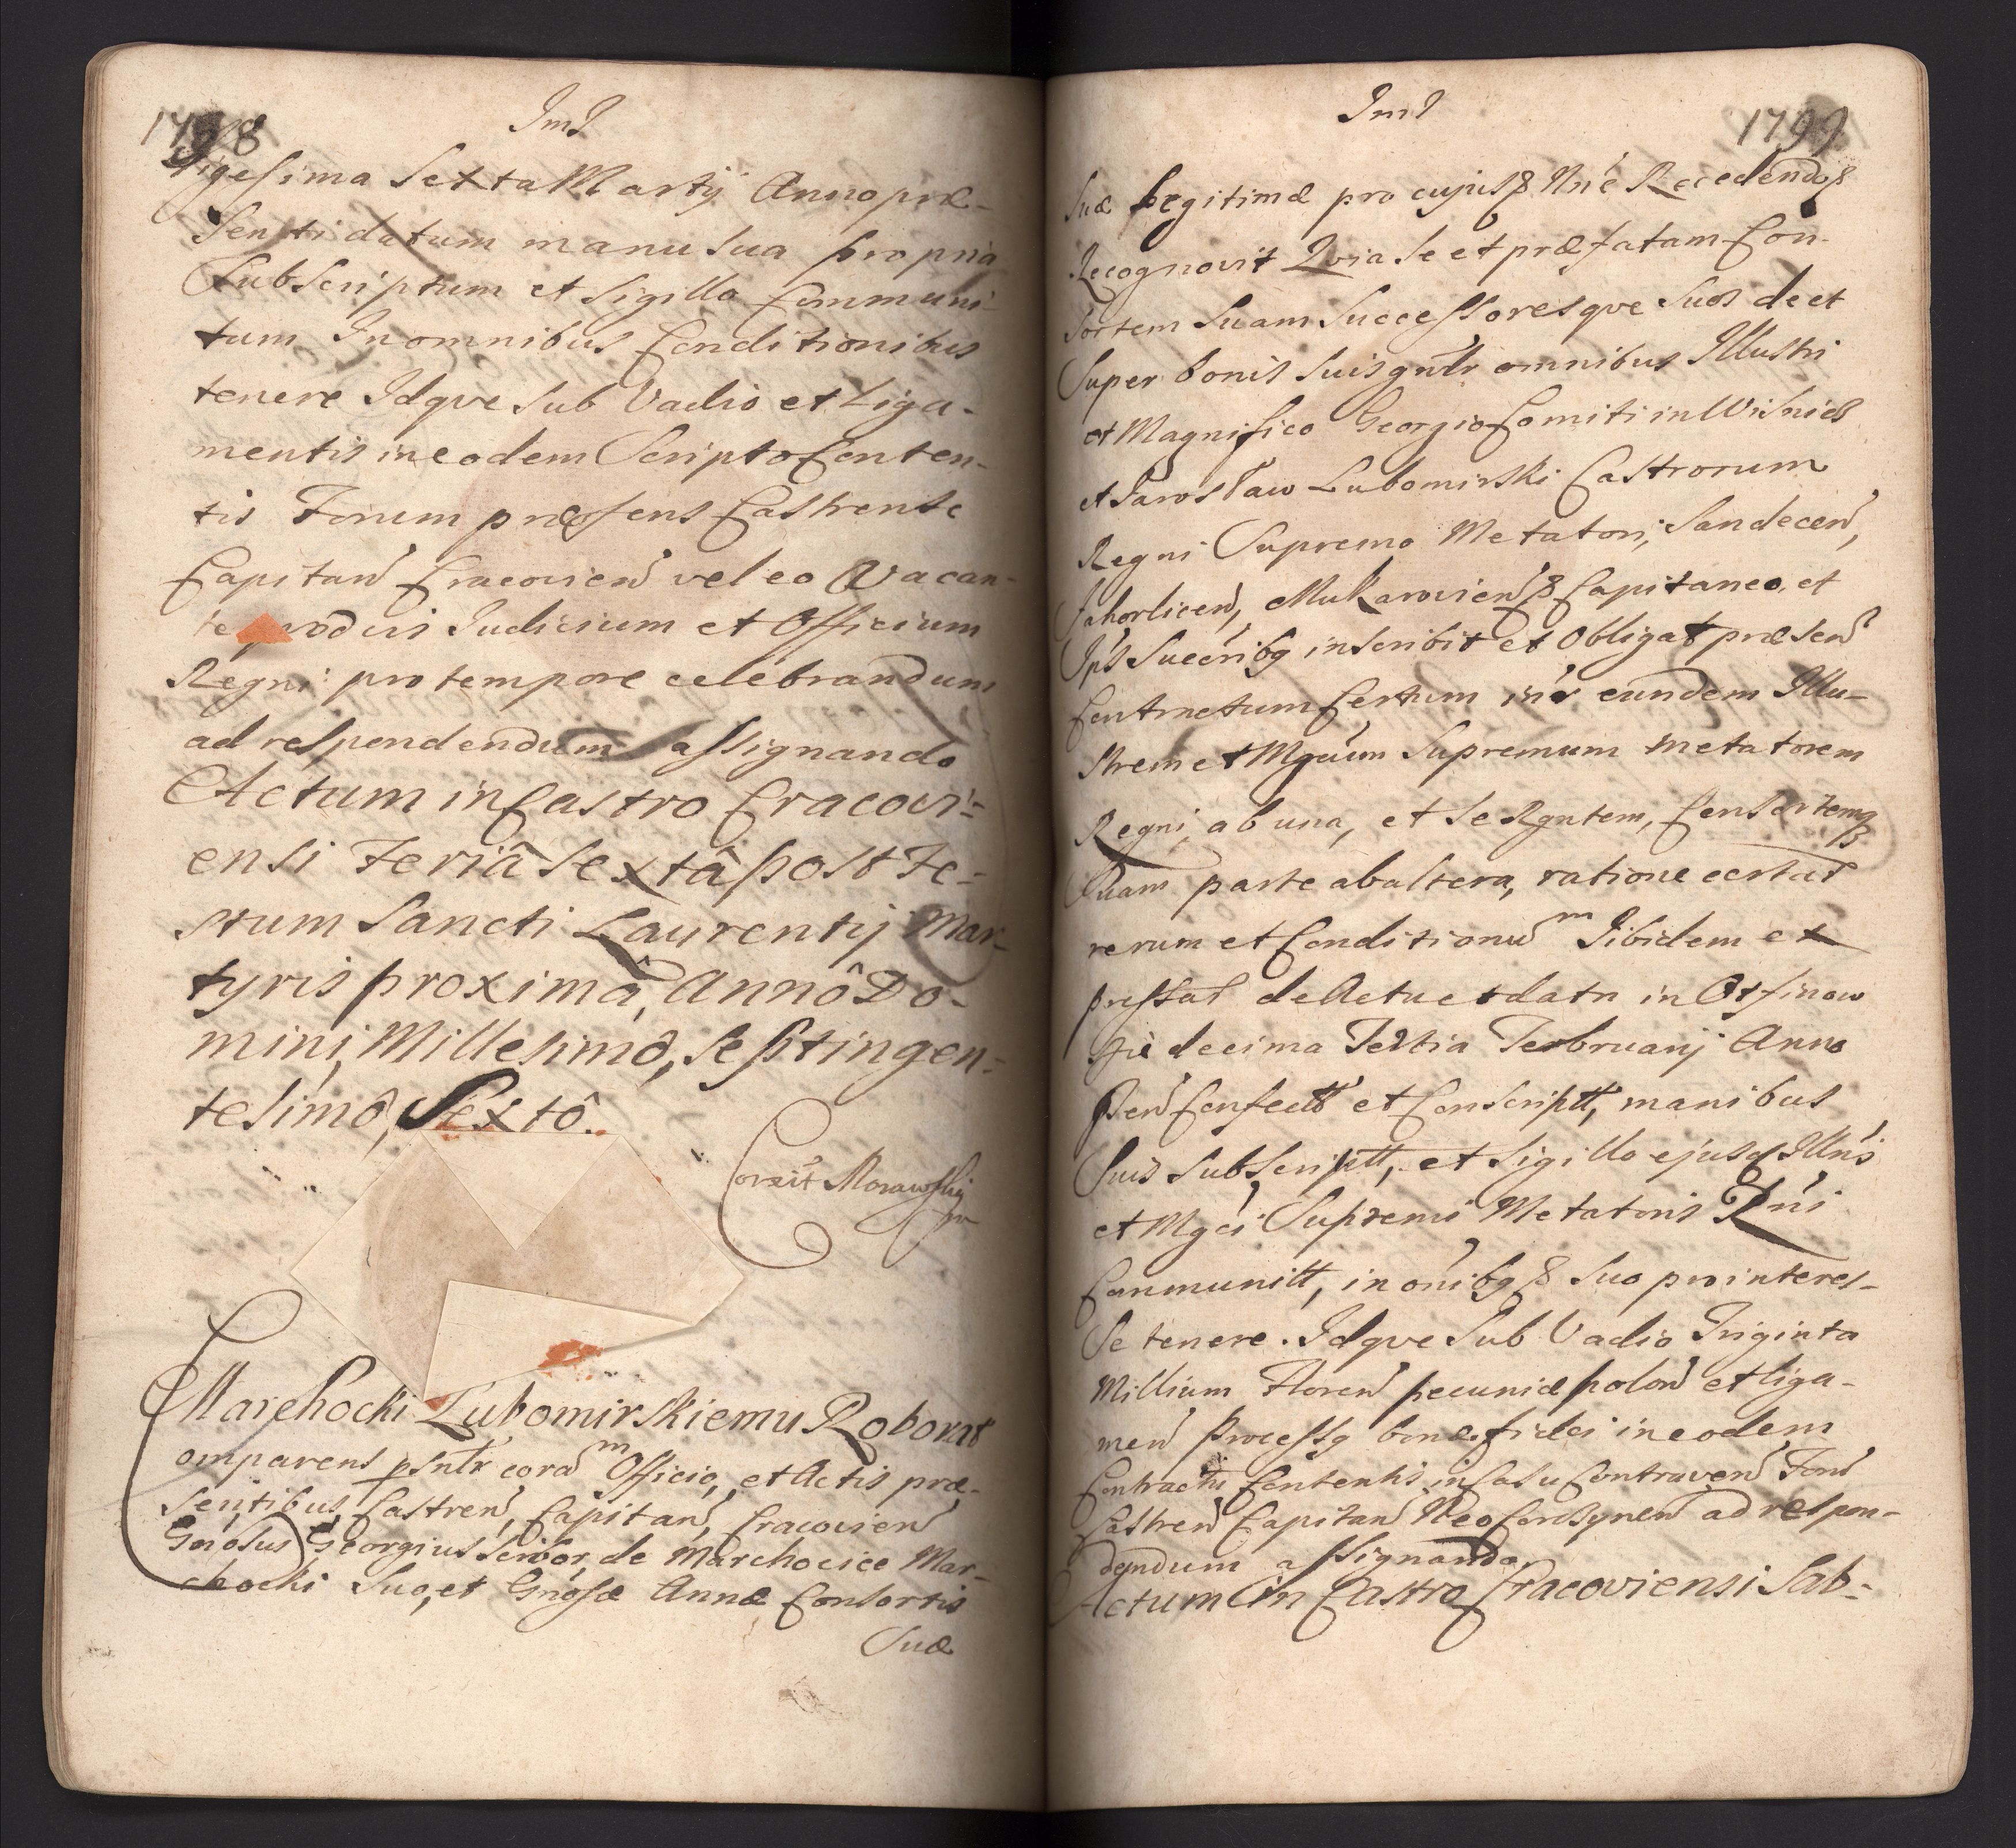 1798
Im1
gesima Sexta Martij Anno præ-
senti datum manu sua propria
Subscriptum et Sigillo Communi-
tum In omnibus Conditionibus
tenere Idqve sub Vadio et Liga-
mentis in eodem Scripto Conten-
tis Forum præsens Castrense
Capitan Cracovien vel eo Vacan-
te Judicium et Officium
Regni pro tempore celebrandum
ad respondendum assignando
Actum in Castro Cracovi=
ensi Feriâ sextâ post Fe=
stum Sancti Laurentij Mar-
tyris proximâ, Annô Do-
mini, Millesimô, Septingen=
tesimô, Sextô.
Corexit Morawski
mp
Marchocki Lubomirskiemu Roborat
Comparens psnltr corã m Officio, et Actis præ-
sentibus, Castren, Capitan, Cracovien
Gnosus Georgius Scibor de Marchocice Mar-
chocki Suo, et Gnosæ Annæ Consortis
Suæ
Im1
1799
Suæ Legitimæ pro cujus Nne Recedendo
Recognovit Qvia se et præfatam Con-
sortem Suam Successoresqve Suos de et
Super bonis suis gnltr omnibus Illustri
et Magnifico Georgio Comiti in Wisnicz
et Jarosław Lubomirski Castrorum
Regni Supremo Metatori, Sandecen,
Jahorlicen, Mukarovien Capitaneo, et
Ips Succribq inscribit et Obligat præsen
Contractum Certum intr eundem Illu-
strem et Mgcum Supremum Metatorem
Regni, ab una, et se Rgntem, Consortemq
Suam parte ab altera, ratione certar
rerum et Conditionu m Ibidem ex
pressar de Actu et datu in Otfinow
die decima Tertia Februarij Anno
Psen Confectt et Conscriptt, manibus
Suis Subscriptt, et Sigillo ejusd Illris
et Mgci Supremi Metatoris Rni
Communitt, in onibq suo pro interes-
se tenere. Idqve sub Vadio Triginta
Millium Floren pecuniæ polon et liga-
men Processq bonæ fidei in eodem
Contractu Contentis, in Casu Contraven Foru
Castren Capitan NeoCorczynen ad respon-
dendum assignando.
Actum in Castro Cracoviensi Sab-